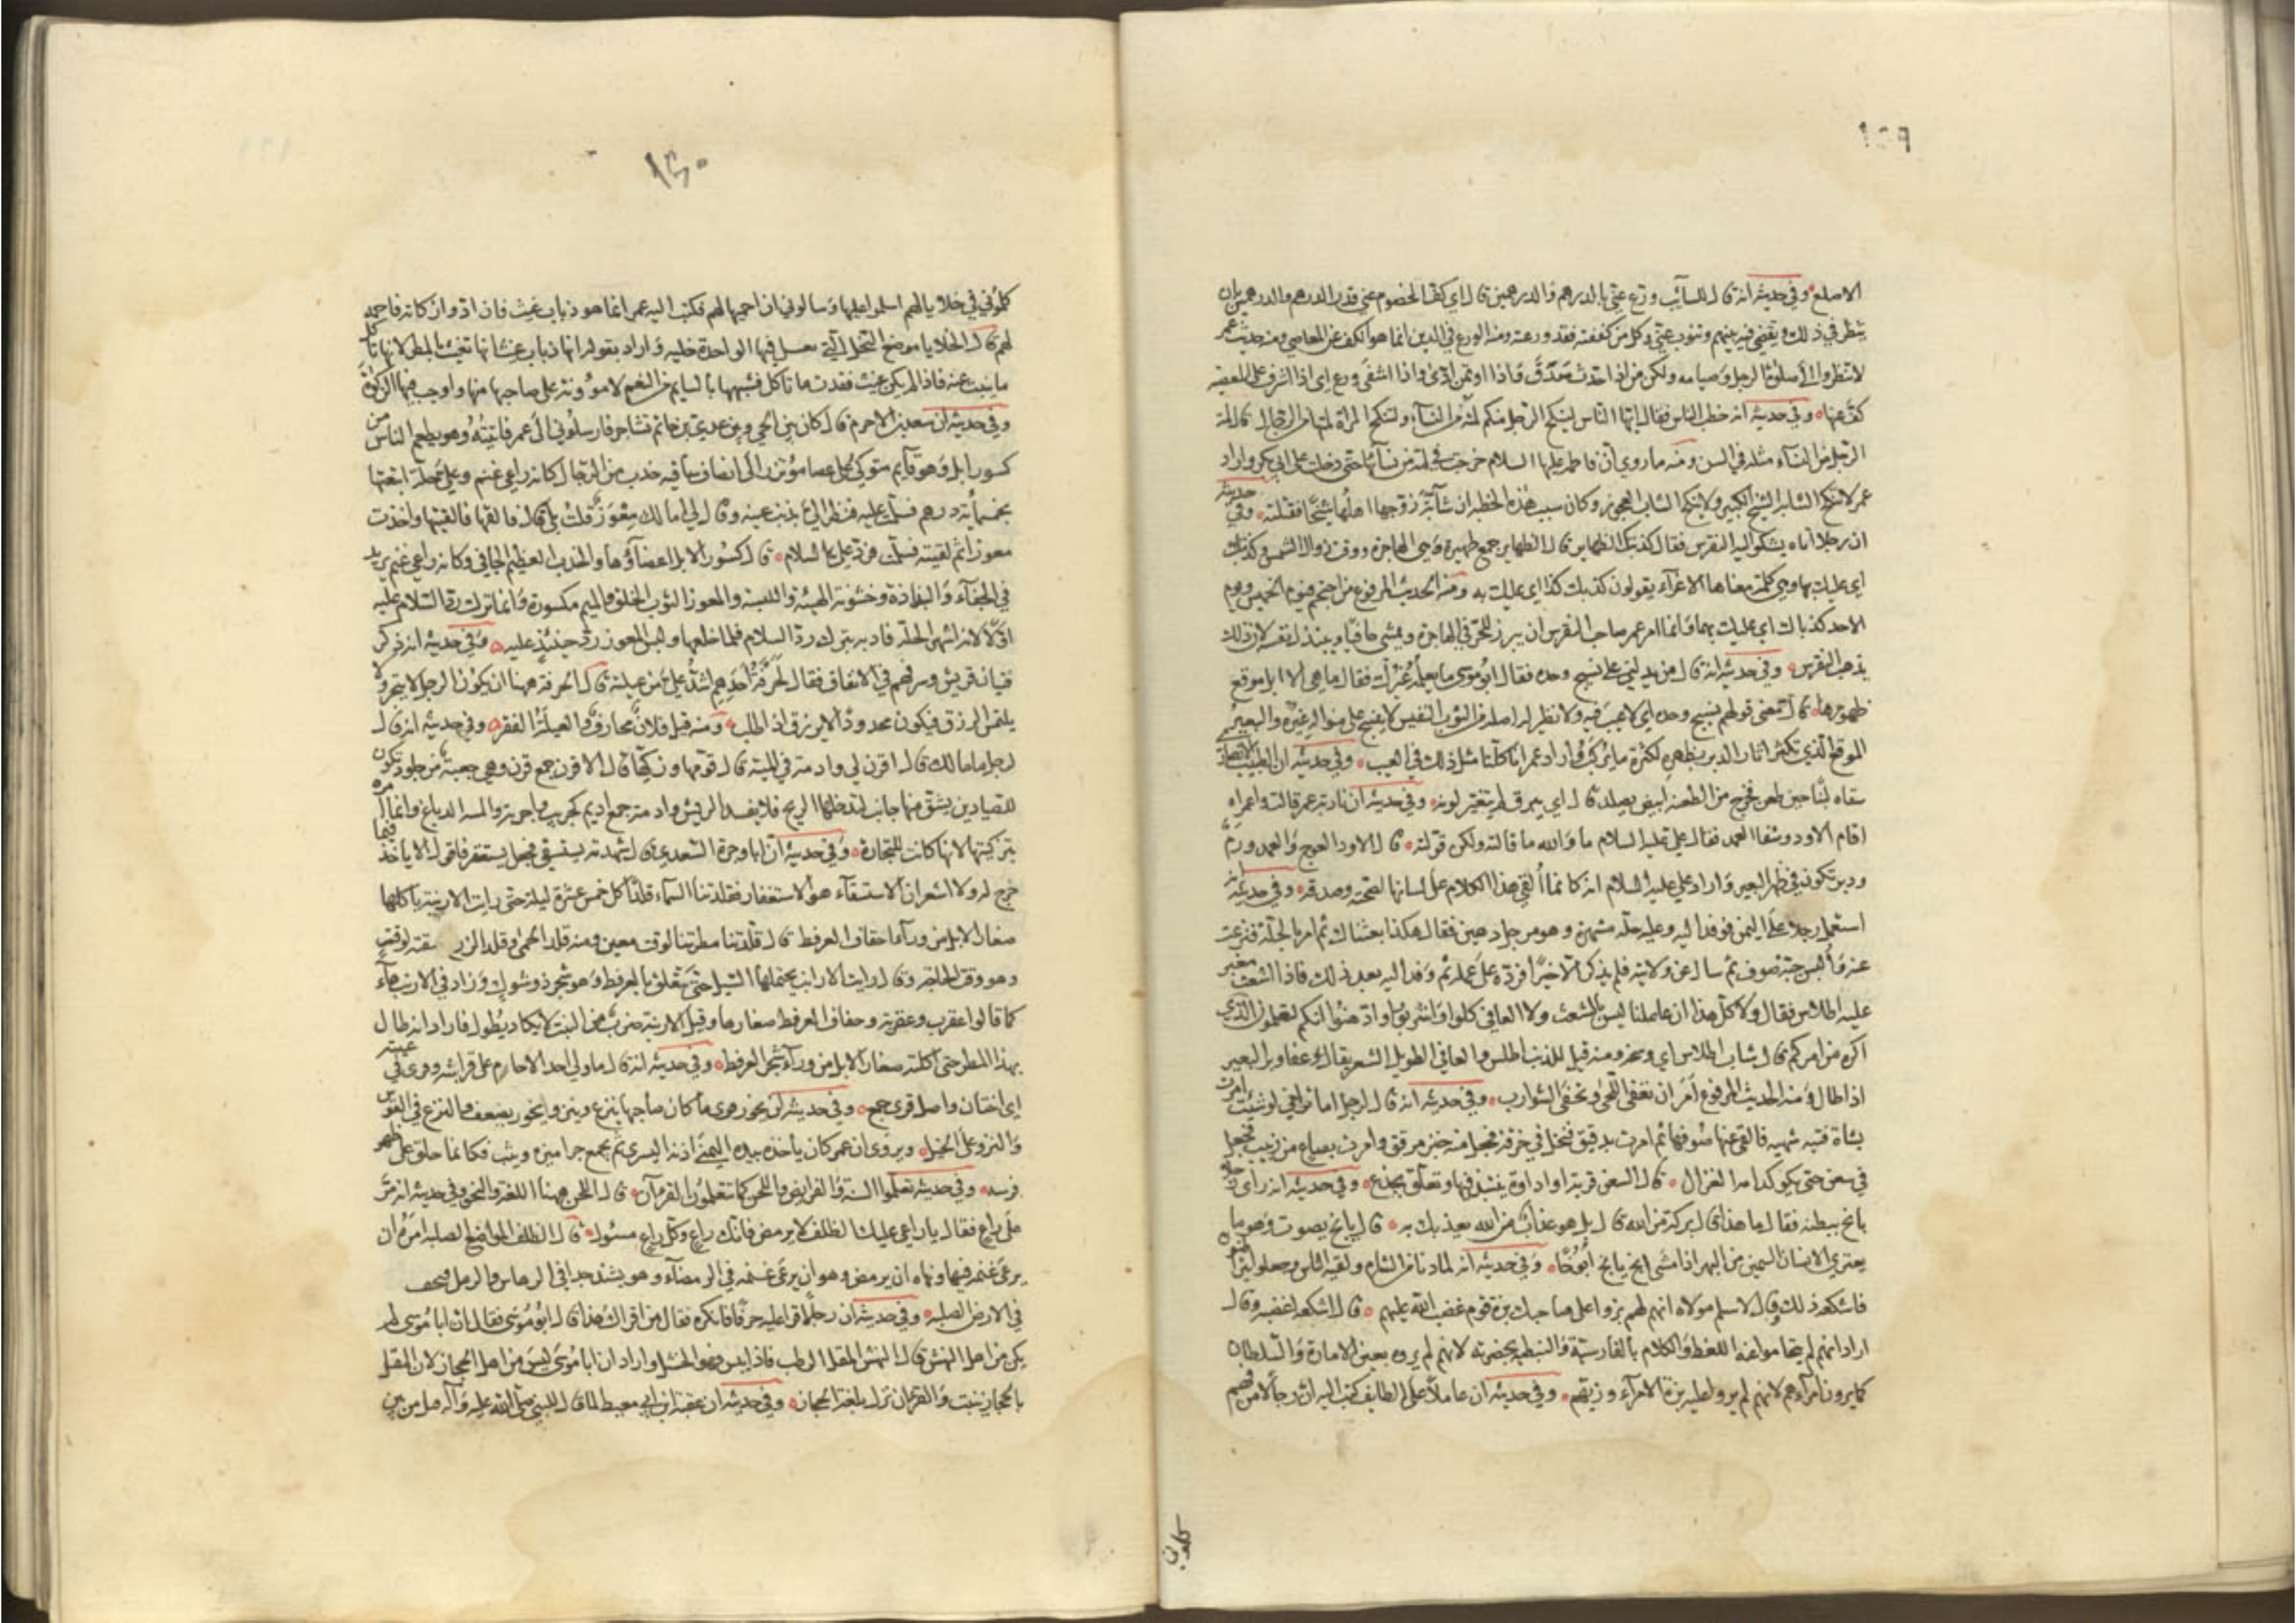 ١٢٩
الاصلع وفي حديثه انه قال للسائب ورع عني بالدرهم والدرهمين قال اي كف الخصوم عني قدر الدرهم والدرهمين بان
ينظر في ذلك ويقضي فيه بينهم وتنوب عني وكل من كففته فقد ورعته ومنه الورع في الدين انما هو الكف عن المعاصي ومنه حديث عمر
لا تنظروا الى صلوة الرجل وصيامه ولكن من اذا حدث صدق واذا اوتمن ادى واذا اشفى ورع اي اذا اشرف على المعصية
كف عنها وفي حديثه انه خطب الناس فقال ايها الناس لينكح الرجل منكم لمته من النساء ولتنكح المراة لمتها من الرجال قال لمة
الرجل من النساء مثله في السن ومنه ما روي ان فاطمة عليها السلام خرجت في لمة من نسائها حتى دخلت على ابي بكر واراد
عمر لا تنكح الشابة الشيخ الكبير ولا ينكح الشاب العجوز وكان سبب هذه الخطبة ان شابة زوجها اهلها شيخا فقتلته وفي حديثه
ان رجلا اتاه يشكو اليه النقرس فقال كذبتك الظهاير قال الظهاير جمع ظهيرة وهي الهاجرة ووقت زوال الشمس وكذبتك
اي عليك بها وهي كلمة معناها الاغراء يقولون كذبك كذا اي عليك به ومنه الحديث المرفوع من احتجم فيوم الخميس ويوم
الاحد كذباك اي عليك بهما وانما امر عمر صاحب النقرس ان يبرز للحر في الهاجرة ويمشي حافيا ويبتذل نفسه لان ذلك
يذهب النقرس وفي حديثه انه قال من يدلني على نسيج وحده فقال ابو موسى ما نعلمه غيرك فقال ما هي الا ابل موقع
ظهورها قال معنى قولهم نسيج وحده اي لا عيب فيه ولا نظير له اصله في الثوب النفيس لا ينسج على منواله غيره والبعير
الموقع الذي تكثر اثار الدبر بظهره لكثرة ما يركب واراد عمر انا كلنا مثل ذلك في العيب وفي حديثه ان الطبيب الانصاري
سقاه لبنا حين طعن فخرج من الطعنة ابيض يصلد قال اي يبرق لم يتغير لونه وفي حديثه ان نادبة عمر قالت واعمراه
اقام الاود وشفا العمد فقال علي عليه السلام ما والله ما قالته ولكن قولته قال الاود العوج والعمد ورم
ودبر يكون في ظهر البعير واراد علي عليه السلام انه كانما القي هذا الكلام على لسانها لصحته وصدقه وفي حديثه انه
استعمل رجلا على اليمن فوفد اليه وعليه حلة مشهرة وهو مرجل دهين فقال هكذا بعثناك ثم امر بالحلة فنزعت
عنه والبس جبة صوف ثم سال عن ولايته فلم يذكر الا خيرا فرده على عمله ثم وفد اليه بعد ذلك فاذا اشعث مغبر
عليه اطلاس فقال ولا كل هذا ان عاملنا ليس بالشعث ولا العافي كلوا واشربوا وادهنوا انكم لتعلمون الذي
اكره من امركم قال ثياب اطلاس اي وسخة ومنه قيل للذئب اطلس والعافي الطويل الشعر يقال عفا وبر البعير
اذا طال ومنه الحديث المرفوع امر ان تعفى اللحى وتحفى الشوارب وفي حديثه انه قال لرجل اما تراني لو شئت امرت
بشاة فتية سمينة فالقي عنها صوفها ثم امرت بدقيق فنخل في خرقة فجعل منه خبز مرقق وامرت بصاع من زبيب فجعل
في سعن حتى يكون كدم الغزال قال السعن قربة او اداوة ينتبذ فيها وتعلق بجذع وفي حديثه انه راى رجلا
يانح ببطنه فقال ما هذا قال بركة من الله قال بل هو عذاب من الله يعذبك به قال يانح يصوت وهو ما
يعتري الانسان السمين من البهر اذا مشى انح يانح انوحا وفي حديثه انه لما دنا من الشام ولقيه الناس وجعلوا يتراطنون
فاشكعه ذلك وقال لاسلم مولاه انهم لم يروا على صاحبك بزة قوم غضب الله عليهم قال اشكعه اغضبه وقال
اراد انهم لم يتحاموا فيه اللغط والكلام بالفارسية والنبطية بحضرته لانهم لم يروه بعين الامارة والسلطان
كما يرون امراءهم لانهم لم يروا عليه بزة الامراء وزيهم وفي حديثه ان عاملا على الطايف كتب اليه ان رجالا من فهم
كلموني
١٣٠
كلموني في خلايا لهم اسلموا عليها وسالوني ان احميها لهم فكتب اليه عمر انما هو ذباب غيث فان ادوا زكاته فاحمه
لهم قال الخلايا موضع النحل التي تعسل فيها الواحدة خلية واراد بقوله انها ذباب غيث انها تعيش بالمطر لانها تاكل
ما ينبت عنه فاذا لم يكن غيث فقدت ما تاكل فشبهها بالسايم من النعم لا موونة على صاحبها منها واوجب فيها الزكوة
وفي حديثه ان سعد بن الاخرم قال كان بين الحي وبين عدي بن حاتم تشاجر فارسلوني الى عمر فاتيته وهو يطعم الناس من
كسور ابل وهو قايم متوكئ على عصا موتزر الى انصاف ساقيه خدب من الرجال كانه راعي غنم وعلي حلة ابتعتها
بخمسماية درهم فسلمت عليه فنظر الي بذنب عينه وقال لي اما لك معوز قلت بلى قال فالقها فالقيتها واخذت
معوزا ثم لقيته فسلمت فرد علي السلام قال كسور الابل اعضاؤها والخدب العظيم الجافي وكانه راعي غنم يريد
في الجفاء والبذاذة وخشونة الهيئة واللبسة والمعوز الثوب الخلق والميم مكسورة وانما ترك رد السلام عليه
اولا لانه اشهر الحلة فادبه بترك رد السلام فلما خلعها ولبس المعوز رد حينئذ عليه وفي حديثه انه ذكر
فتيان قريش وسرفهم في الانفاق فقال لحرفة احدهم اشد علي من عيلته قال الحرفة ههنا ان يكون الرجل لا يتجر ولا
يلتمس الرزق فيكون محدودا لا يرزق اذا طلب ومنه قيل فلان محارف والعيلة الفقر وفي حديثه انه قال
لرجل ما مالك قال اقرن لي وادمة في المنيئة قال قومها وزكها قال الاقرن جمع قرن وهي جعبة من جلود تكون
للصيادين يشق منها جانب لتدخلها الريح فلا يفسد الريش وادمة جمع اديم كجريب واجربة والمنيئة الدباغ وانما امره
بتزكيتها لانها كانت للتجارة وفي حديثه ان ابا وجزة السعدي قال شهدته يستسقي فجعل يستغفر فاقول الا ياخذ فيما
خرج له ولا اشعر ان الاستسقاء هو الاستغفار فقلدتنا السماء قلدا كل خمس عشرة ليلة حتى رايت الارنبة ياكلها
صغار الابل من وراء حقاق العرفط قال قلدتنا مطرتنا لوقت معين ومنه قلد الحمى وقلد الزرع سقته لوقت
وهو وقت الحاجة وقال رايت الارانب يحتملها السيل حتى تتعلق بالعرفط وهو شجر ذو شوك وزاد في الارنب هاء
كما قالوا عقرب وعقربة وحقاق العرفط صغارها وقيل الارينة ضرب من النبت لا يكاد يطول فاراد انه طال
بهذا المطر حتى اكلته صغار الابل من وراء شجر العرفط وفي حديثه انه قال ما ولي احد الا حام على قرابته وقرى في عيبته
اي اختان واصل قرى جمع وفي حديثه لن تخور قوى ما كان صاحبها ينزع وينزو ايخور يضعف والنزع في القوس
والنزو على الخيل ويروى ان عمر كان ياخذ بيده اليمنى اذنه اليسرى ثم يجمع جراميزه ويثب فكانما خلق على ظهر
فرسه وفي حديثه تعلموا السنة والفرايض واللحن كما تتعلمون القرآن قال اللحن ههنا اللغة والنحو وفي حديثه انه مر
على راع فقال يا راعي عليك الظلف لا ترمض فانك راع وكل راع مسئول قال الظلف المواضع الصلبة امره ان
يرعى غنمه فيها ونهاه ان يرمض وهو ان يرعى غنمه في الرمضاء وهو يشتد جدا في الدهاس والرمل ويخف
في الارض الصلبة وفي حديثه ان رجلا قرا عليه حرفا فانكره فقال من اقراك هذا قال ابو موسى فقال ان ابا موسى لم
يكن من اهل البهش قال البهش المقل الرطب فاذا يبس فهو الخشل واراد ان ابا موسى ليس من اهل الحجاز لان المقل
بالحجاز ينبت والقرآن نزل بلغة الحجاز وفي حديثه ان عقبة ابن ابي معيط لما قال للنبي صلى الله عليه وآله من بين